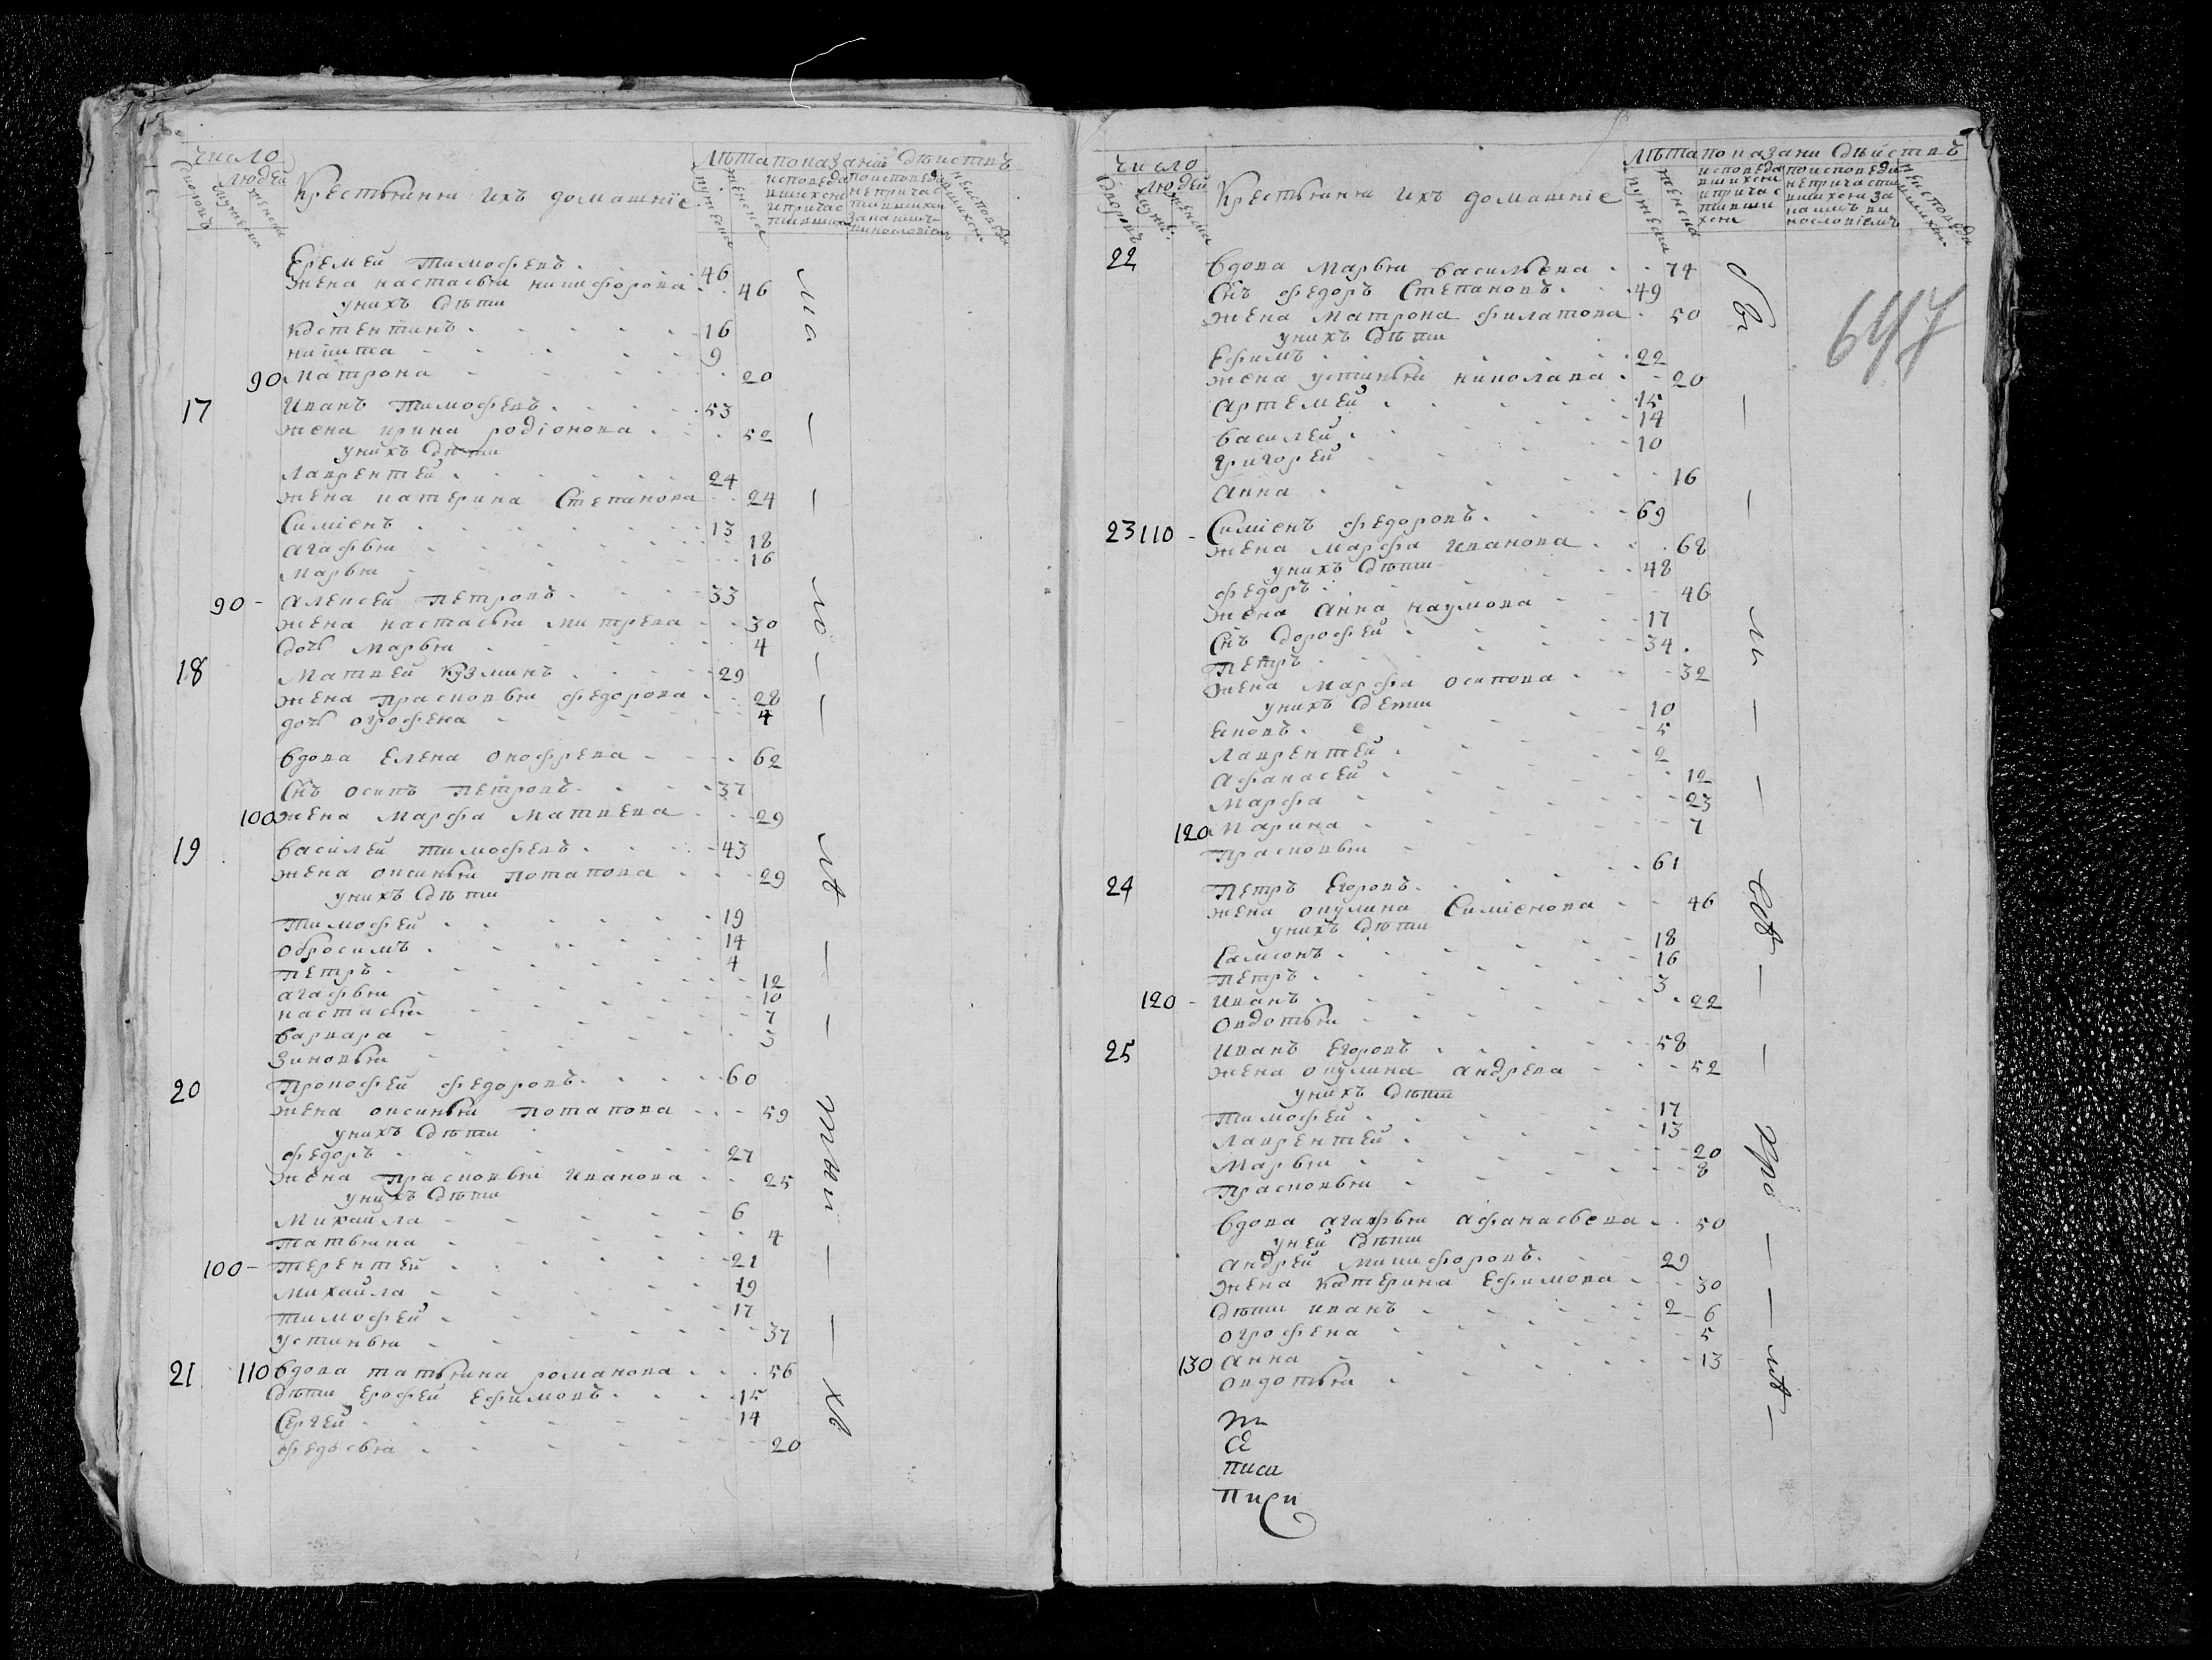 число
людей
дворовъ
мужеска
женска
Крестьянѣ ихъ домашніе
Лѣта
показаніи дѣиствъ
мужеска
женска
Еремѣй тимофѣевъ 46
жена настасья никифорова 46
у нихъ дѣти
костентинъ 16
никита 9
90 матрона 20
17 иванъ тимофѣевъ 53
жена ирина родіонова 52
у нихъ дѣти
лаврентѣй 24
жена катерина степанова 24
симіенъ 13
агафья 18
марья 16
90 алексѣй петровъ 33
жена настасья митрева 30
дочь марья 4
18 матвѣй кузминъ 29
жена прасковья федорова 28
дочь огрофена 4
вдова елена онофрева 62
снъ осипъ петровъ 37
100 жена марфа матвева 29
19 василѣй тимофевъ 43
жена оксинья потапова 29
у нихъ дѣти
тимофѣй 19
обросимъ 14
петръ 4
агафья 12
настасья 10
варвара 7
зиновья 3
20 прокофѣй федоровъ 60
жена оксинья потапова 59
у нихъ дѣти
федоръ 27
жена прасковья иванова 25
у нихъ дѣти
михаила 6
татьяна 4
100 терентѣй 21
михаила 19
тимофѣй 17
устинья 37
21 110 вдова татьяна романова 56
дѣти ерофѣй ефимовъ 15
сергѣй 14
федосья 20
число
людей
дворовъ
женска
Крестьянѣ ихъ домашніе
лѣта показани дѣиствъ
мужеска
женска
647
22 вдова марья васильева 74
снъ федоръ степановъ 49
жена матрона филатова 50
у нихъ дѣти
ефимъ 22
жена устинья николава 20
артемѣй 15
василѣй 14
григорѣй 10
анна 16
23 110 симіенъ федоровъ 69
жена марфа иванова 68
у нихъ дѣти
федоръ 48
жена анна наумова 46
снъ дорофѣй 17
петръ 34
жена марфа осипова 32
у нихъ дети
яковъ 10
лаврентѣй 5
афанасѣй 2
марфа 12
120 марина 23
прасковья 7
24 петръ егоровъ 61
жена окулина симіенова 46
у нихъ дѣти
самсонъ 18
петръ 16
120 иванъ 3
овдотья 22
25 иванъ егоровъ 58
жена окулина андрева 52
у нихъ дѣти
тимофѣй 17
лаврентѣй 13
марья 20
прасковья 8
вдова агафья афанасьева 50
у ней дѣти
андрѣй никифоровъ 29
жена катерина ефимова 30
дѣти иванъ 2
огрофена 6
130 анна 5
овдотья 13